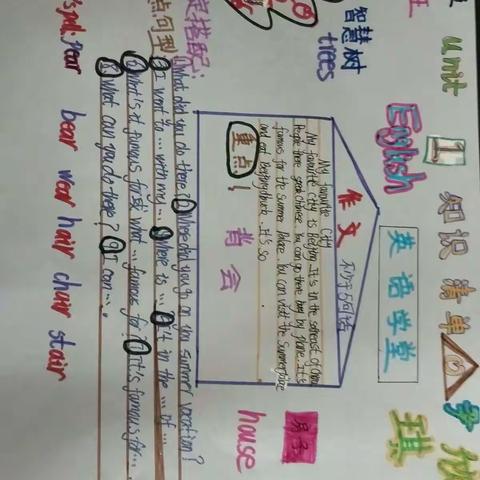 Unit 1 知识清单
English
英语学堂
琪
智慧树
trees
作文 不少于5句话
My favourite City
My favourite city is Beijing. It's in the of China
People there speak chinese. You can go there by plane. It's
famous for the summer Palace. You can visit the summer place
and eat Beijing duck. It's so
重点!
背会
房子
house
定搭配:
What did you do there? Where did you go on you summer vacation?
点句型
I went to ... with my ... Where is ... It in the ... of ...
What's it famous for? 或 what ... famous for? It's famous for ...
What can you do there? I can ...
pear bear wear hair chair stair